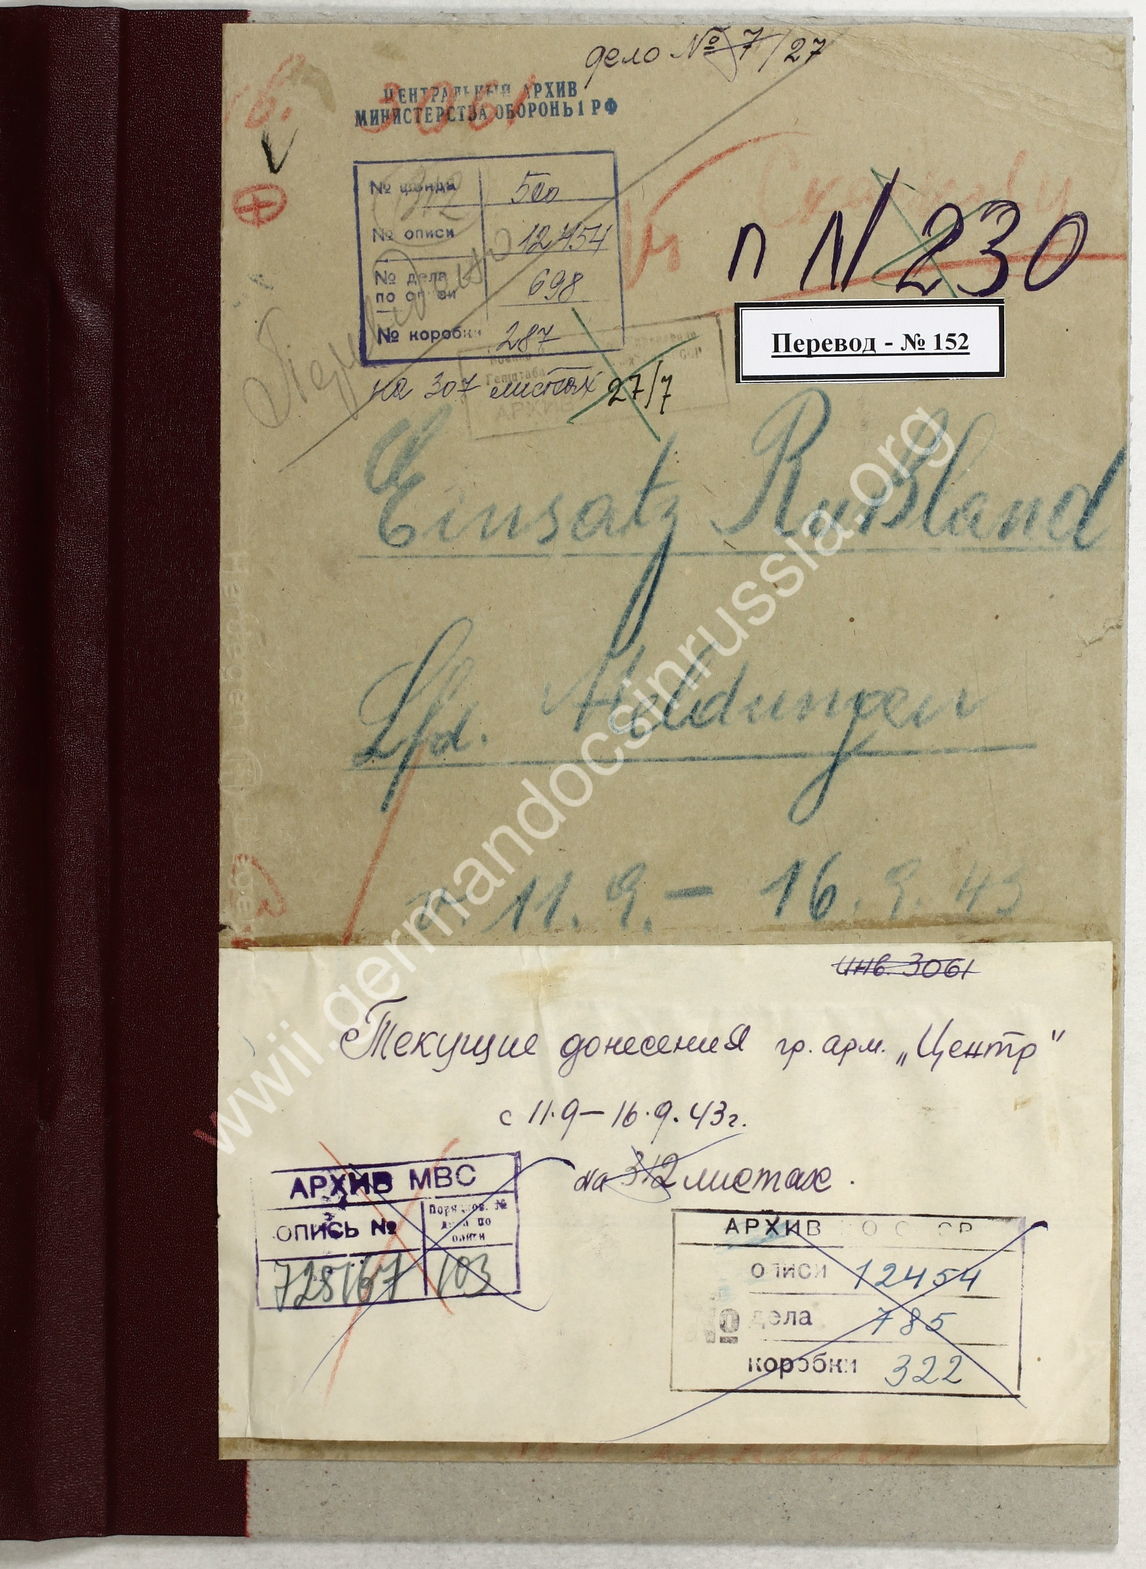 дело № 7/27
3061
ЦЕНТРАЛЬНЫЙ АРХИВ
МИНИСТЕРСТВА ОБОРОНЫ РФ
№ фонда 500
№ описи 12454
№ дела по описи 698
№ коробки 287
п N 230
Перевод - № 152
на 307 листах 27/7
Einsatz Rußland
Lfd. Meldungen
v. 11.9. - 16.9.43
инв. 3061
Текущие донесения гр. арм. „Центр"
с 11.9 - 16.9.43г.
на 312 листах.
АРХИВ МВС
ОПИСЬ №
Порядков. № дела по описи
728167 103
АРХИВ
описи 12454
№ дела 785
коробки 322
wwii.germandocsinrussia.org